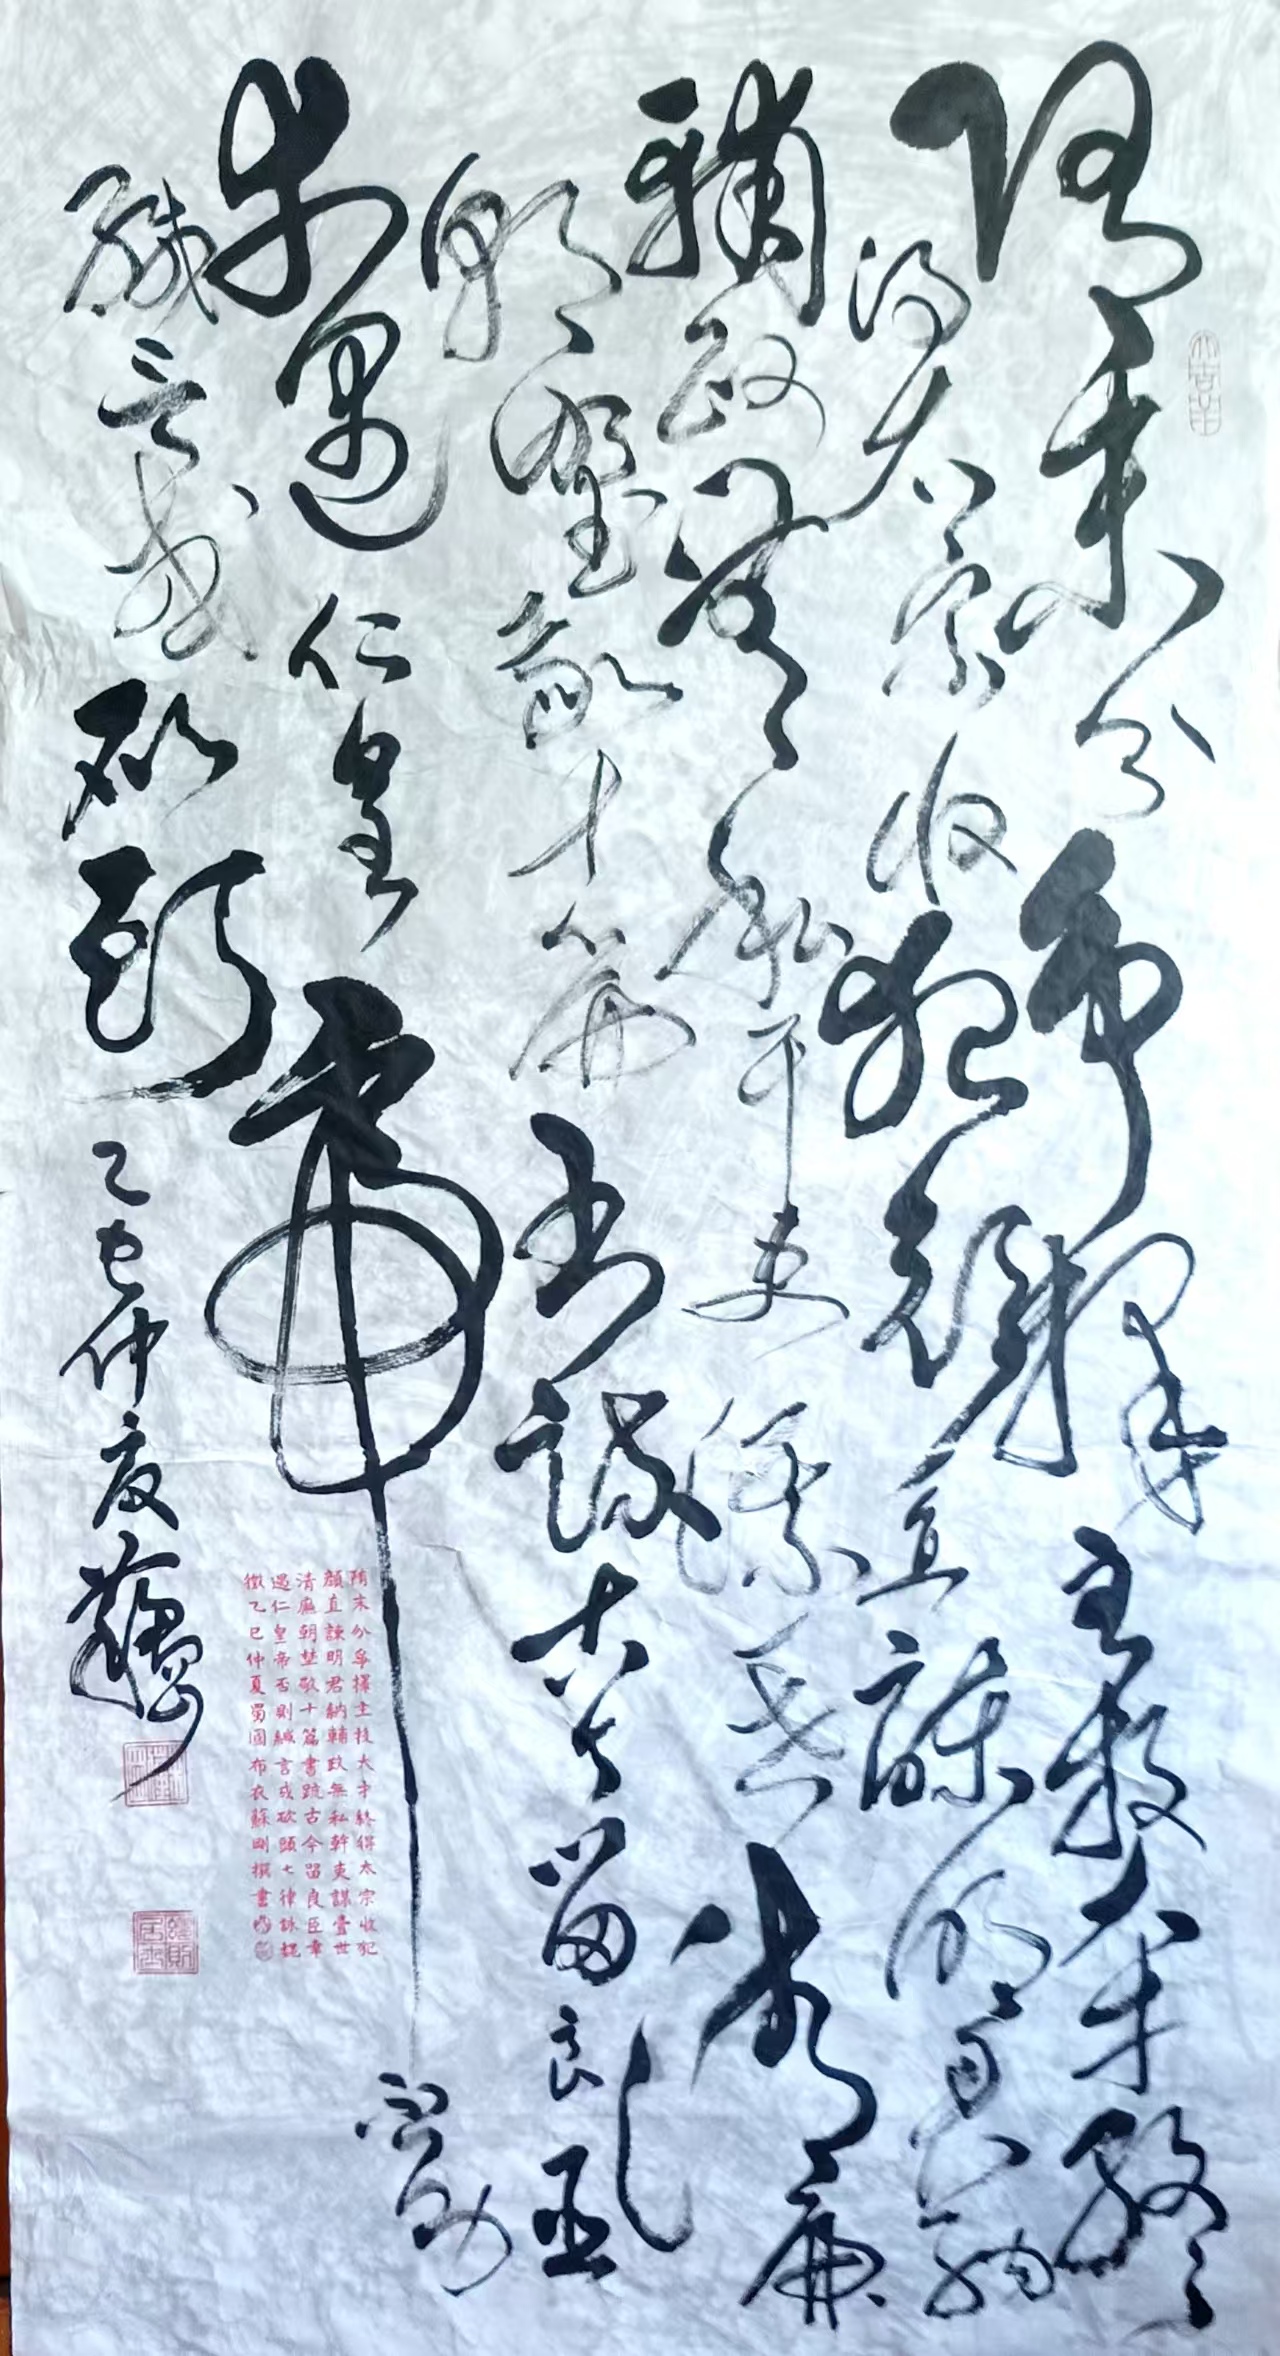 隋末分爭擇主投大才終
得太宗收犯顏直諫明君納
輔政無私干吏謀世清廉
朝埜敬十篇書疏古今留良臣
幸遇仁皇帝否則
緘言或砍頭
乙巳仲夏蘇剛
隋末分爭擇主投大才終得太宗收犯
顏直諫明君納輔政無私幹吏謀壹世
清廉朝埜敬十篇書疏古今留良臣幸
遇仁皇帝否則緘言或砍頭七律詠魏
徵乙巳仲夏蜀國布衣蘇剛撰書